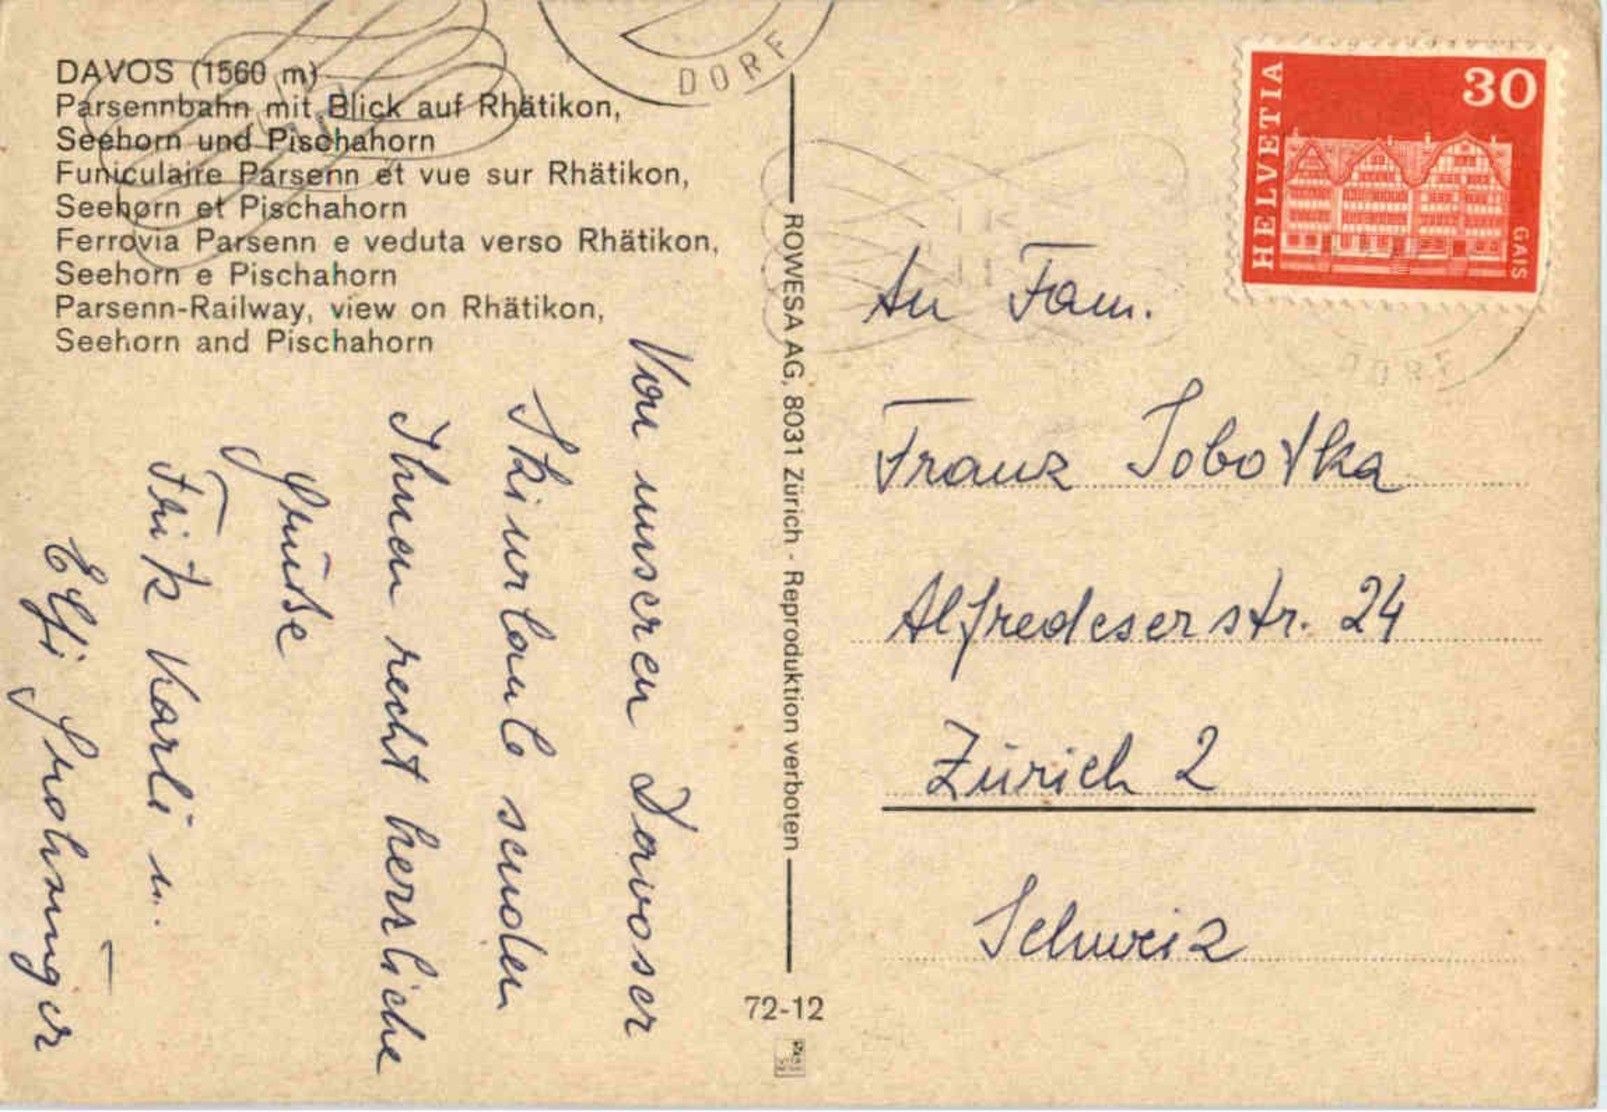 DAVOS (1560 m)
Parsennbahn mit Blick auf Rhätikon,
Seehorn und Pischahorn
Funiculaire Parsenn et vue sur Rhätikon,
Seehorn et Pischahorn
Ferrovia Parsenn e veduta verso Rhätikon,
Seehorn e Pischahorn
Parsenn-Railway, view on Rhätikon,
Seehorn and Pischahorn
DORF
Von unseren Davoser
Skiurlaub senden
Ihnen recht herzliche
Grüße
Fritz Karli u.
Elfi
ROWESA AG, 8031 Zürich - Reproduktion verboten
72-12
HELVETIA
30
GAIS
An Fam.
Franz Sobotka
Alfredeserstr. 24
Zürich 2
Schweiz